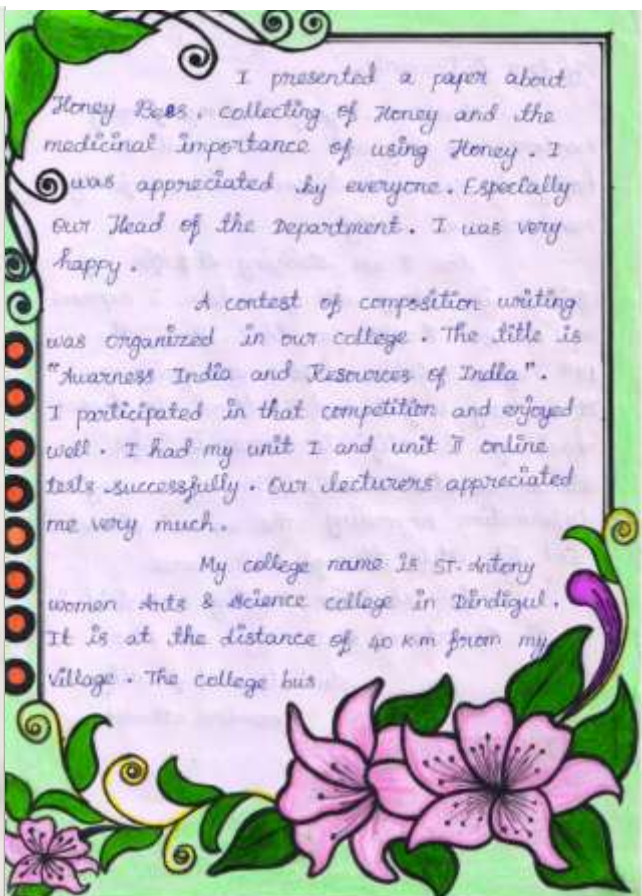 I presented a paper about
Honey Bees, collecting of Honey and the
medicinal importance of using Honey. I
was appreciated by everyone. Especially
our Head of the Department. I was very
happy.
A contest of composition writing
was organized in our college. The title is
"Awarness India and Resources of India".
I participated in that competition and enjoyed
well. I had my unit I and unit II online
tests successfully. Our lecturers appreciated
me very much.
My college name is ST. Antony
women Arts & Science college in Dindigul.
It is at the distance of 40 KM from my
village. The college bus